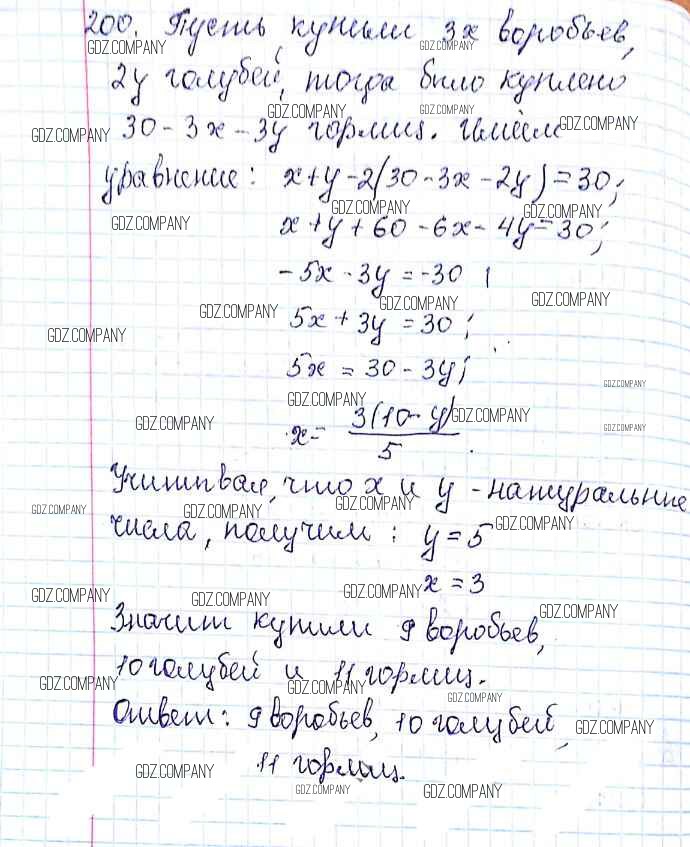 200. Пусть купили 3x воробьев,
2y голубей, тогда было куплено
30 - 3x - 3y горлиц. Имеем
уравнение: x + y - 2(30 - 3x - 2y) = 30;
x + y + 60 - 6x - 4y = 30;
-5x - 3y = -30;
5x + 3y = 30;
5x = 30 - 3y;
x = 3(10 - y)/5.
Учитывая, что x и y - натуральные
числа, получим: y = 5
x = 3
Значит купили 9 воробьев,
10 голубей и 11 горлиц.
Ответ: 9 воробьев, 10 голубей,
11 горлиц.
GDZ.COMPANY